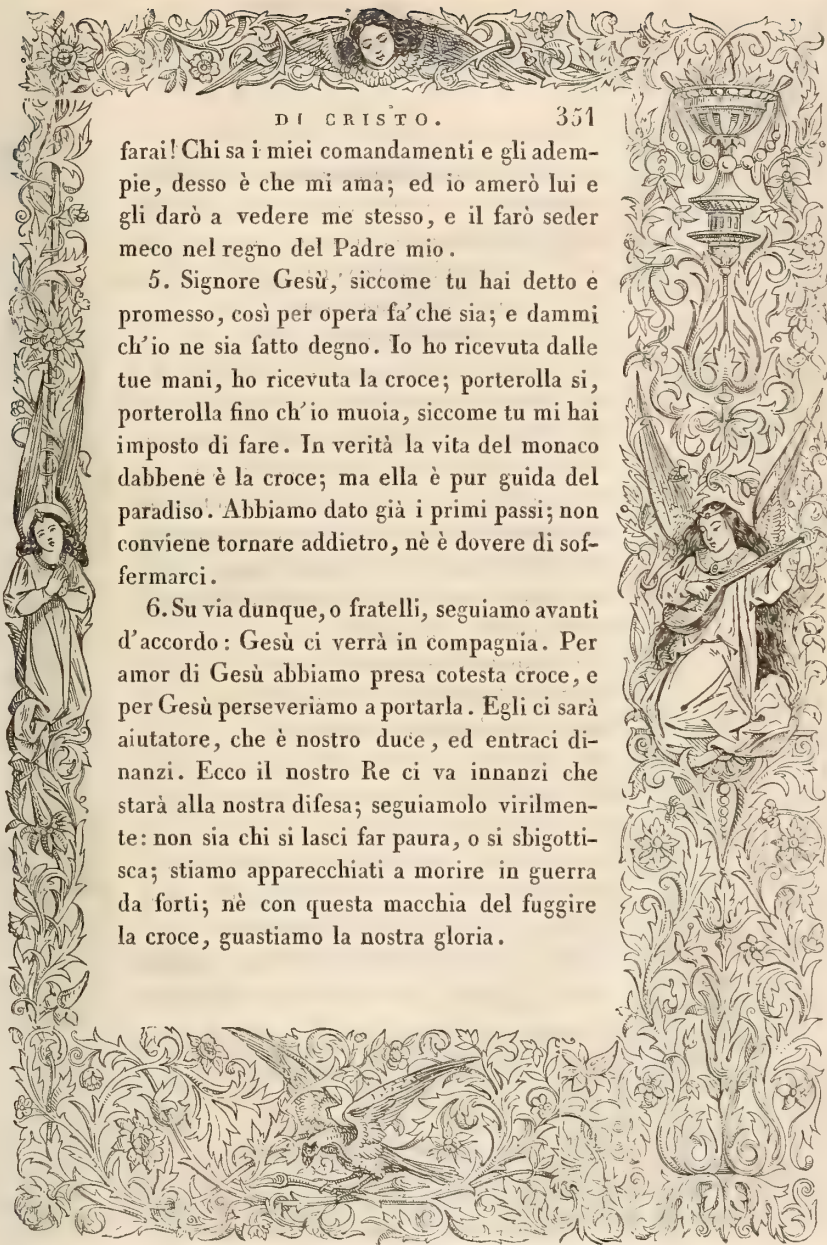 DI CRISTO. 351
farai! Chi sa i miei comandamenti e gli adem-
pie, desso è che mi ama; ed io amerò lui e
gli darò a vedere me stesso, e il farò seder
meco nel regno del Padre mio.
5. Signore Gesù, siccome tu hai detto e
promesso, così per opera fa' che sia; e dammi
ch'io ne sia fatto degno. Io ho ricevuta dalle
tue mani, ho ricevuta la croce; porterolla si,
porterolla fino ch'io muoia, siccome tu mi hai
imposto di fare. In verità la vita del monaco
dabbene è la croce; ma ella è pur guida del
paradiso. Abbiamo dato già i primi passi; non
conviene tornare addietro, nè è dovere di sof-
fermarci.
6. Su via dunque, o fratelli, seguiamo avanti
d'accordo: Gesù ci verrà in compagnia. Per
amor di Gesù abbiamo presa cotesta croce, e
per Gesù perseveriamo a portarla. Egli ci sarà
aiutatore, che è nostro duce, ed entraci di-
nanzi. Ecco il nostro Re ci va innanzi che
starà alla nostra difesa; seguiamolo virilmen-
te: non sia chi si lasci far paura, o si sbigotti-
sca; stiamo apparecchiati a morire in guerra
da forti; nè con questa macchia del fuggire
la croce, guastiamo la nostra gloria.